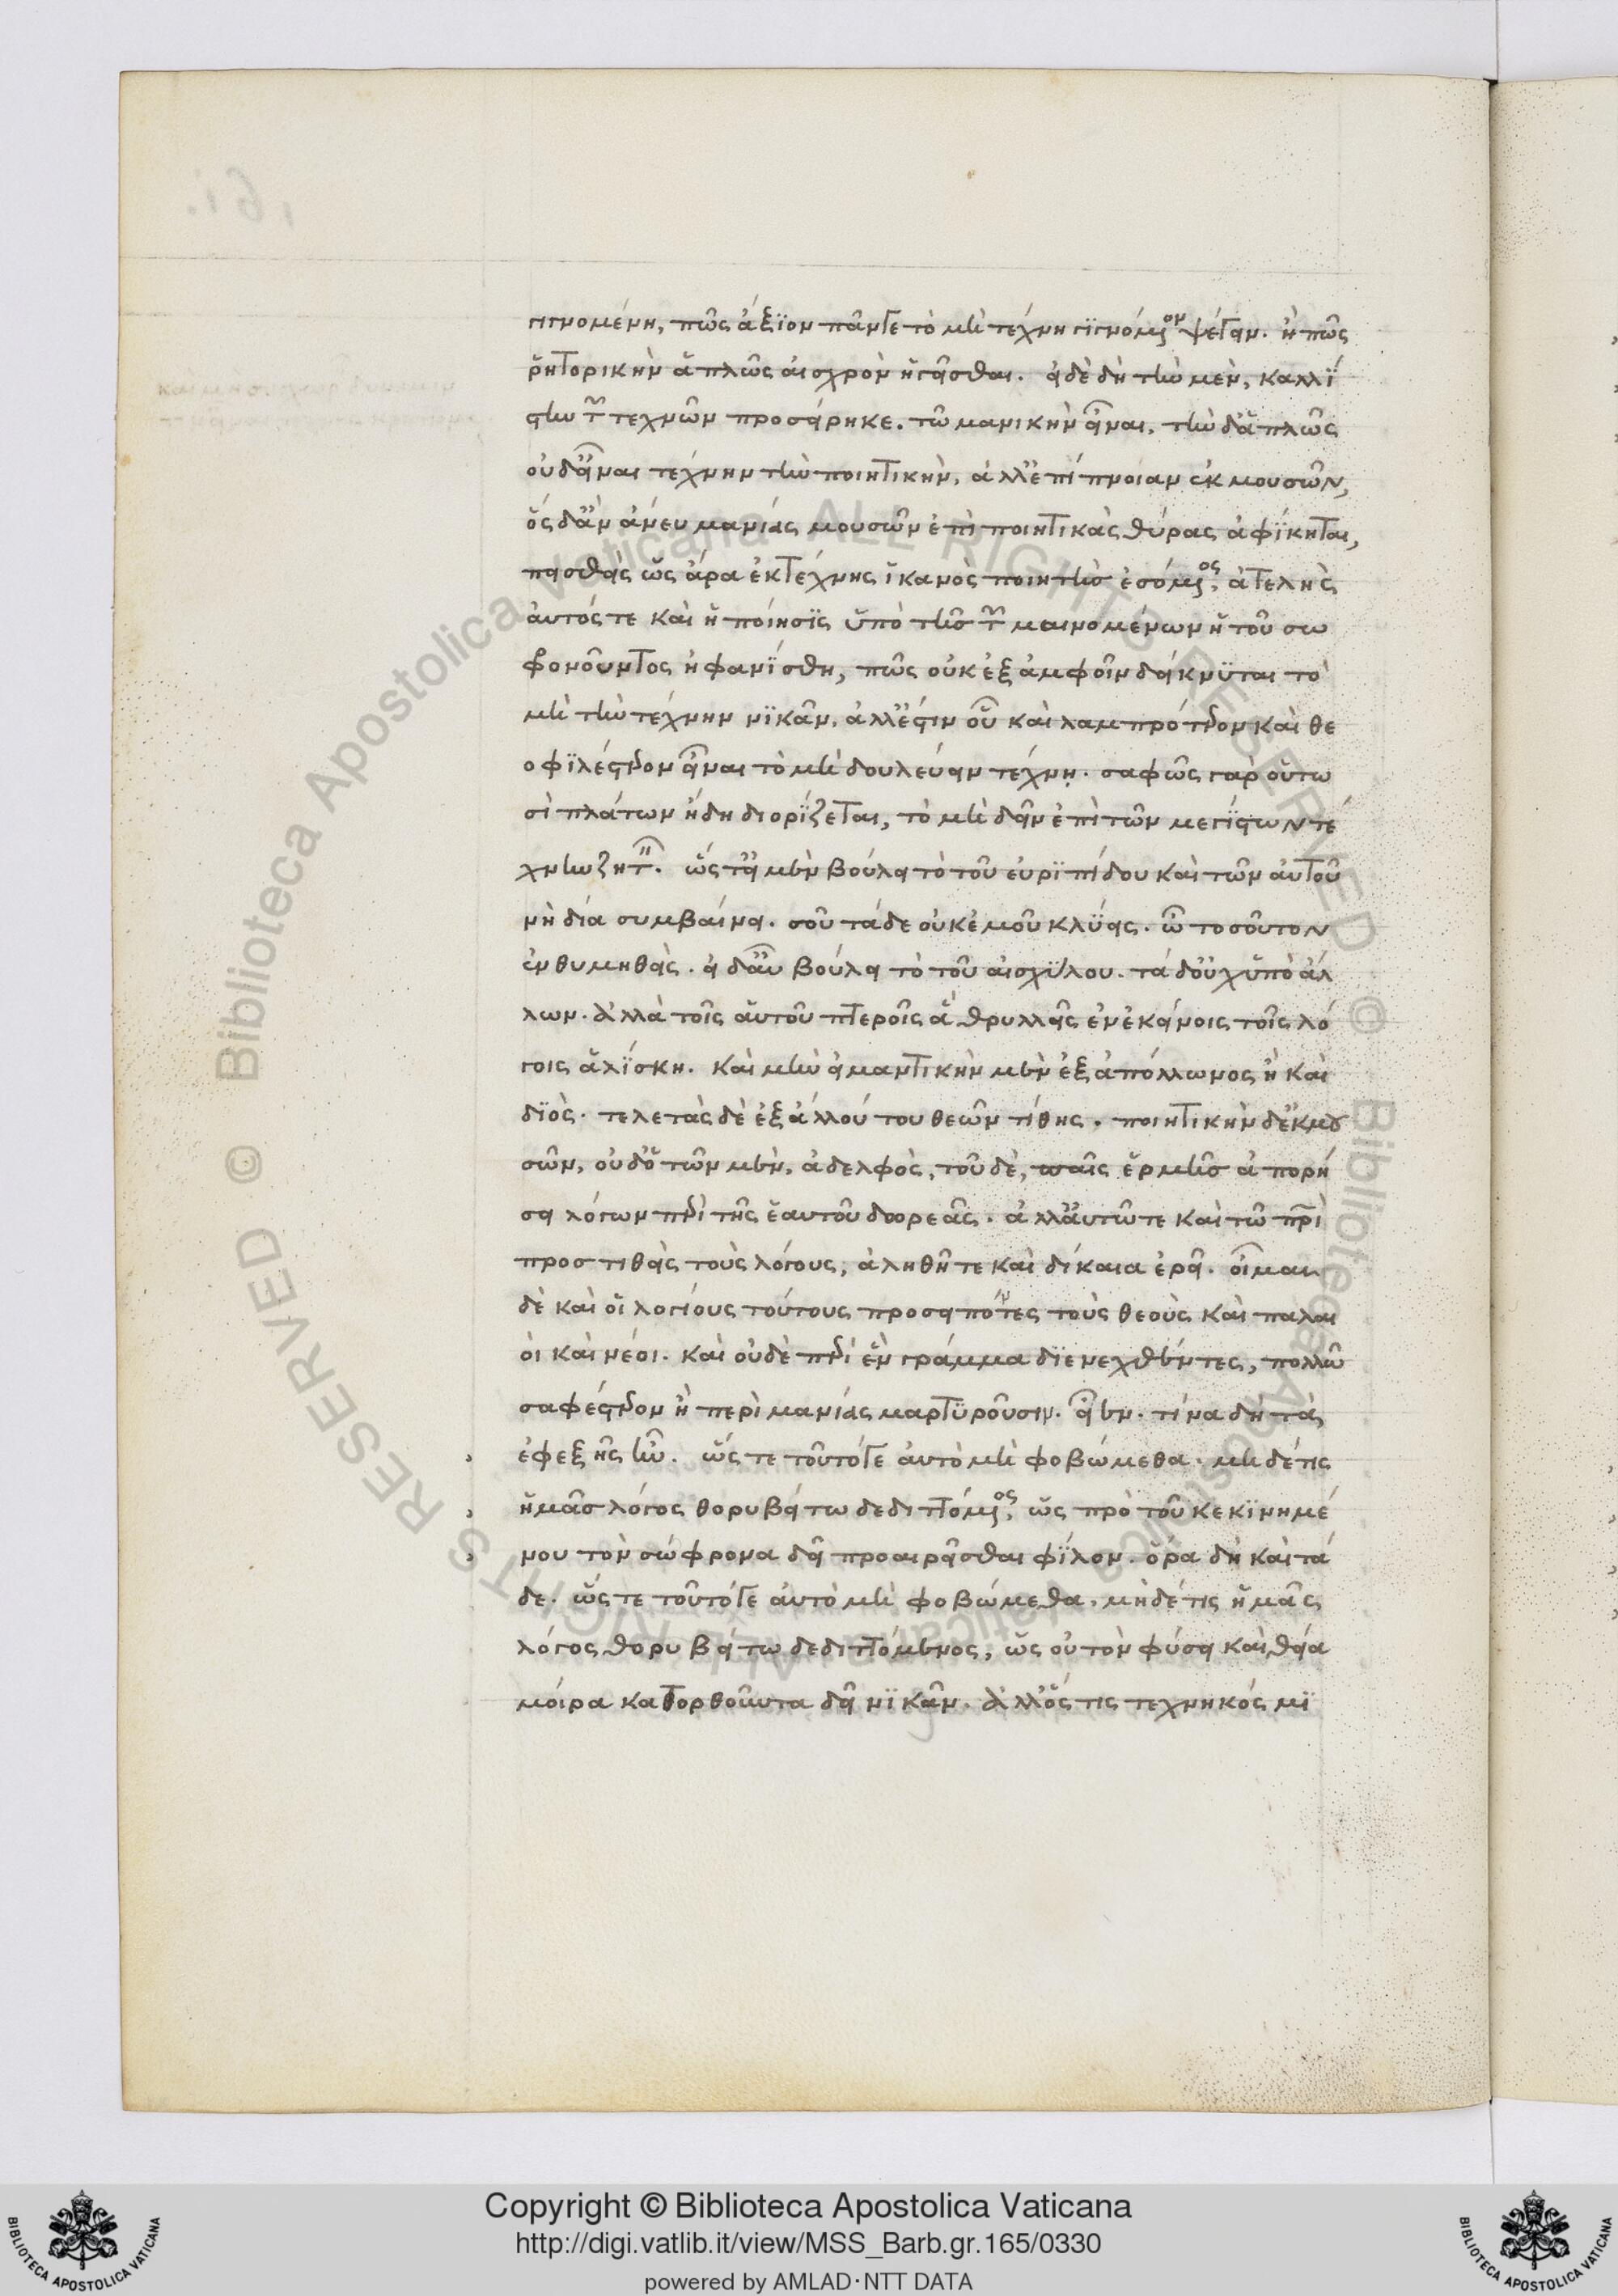 γιγνομένη, πῶς ἄξιον πᾶν γε τὸ μὴ τέχνῃ γιγνόμενον ψέγειν. ἢ πῶς
ῥητορικὴν ἁπλῶς αἰσχρὸν ἡγεῖσθαι. εἰ δὲ δὴ τὴν μὲν, καλλί
στην τῶν τεχνῶν προσείρηκε. τῷ μανικὴν εἶναι. τὴν δ' ἁπλῶς
οὐδ' εἶναι τέχνην τὴν ποιητικὴν, ἀλλ' ἐπίπνοιαν ἐκ μουσῶν,
ὃς δ' ἂν ἄνευ μανίας μουσῶν ἐπὶ ποιητικὰς θύρας ἀφίκηται,
πεισθεὶς ὡς ἄρα ἐκ τέχνης ἱκανὸς ποιητὴς ἐσόμενος, ἀτελὴς
αὐτός τε καὶ ἡ ποίησις ὑπὸ τῆς τῶν μαινομένων ἡ τοῦ σω
φονοῦντος ἠφανίσθη, πῶς οὐκ ἐξ ἀμφοῖν δείκνυται τὸ
μὴ τὴν τέχνην νικᾶν. ἀλλ' ἔστιν οὗ καὶ λαμπρότερον καὶ θε
οφιλέστερον εἶναι τὸ μὴ δουλεύειν τέχνῃ. σαφῶς γὰρ οὕτω
σὶ πλάτων ἤδη διορίζεται, τὸ μὴ δεῖν ἐπὶ τῶν μεγίστων τέ
χνην ζητεῖν. ὥστ' εἰ μὲν βούλει τὸ τοῦ εὐριπίδου καὶ τῶν αὐτοῦ
νὴ δία συμβαίνει. σοῦ τάδε οὐκ ἐμοῦ κλύεις. ὦ τοσοῦτον
ἐνθυμηθείς. εἰ δ' αὖ βούλει τὸ τοῦ αἰσχύλου. τά δ' οὐχ ὑπὸ ἄλ
λων. ἀλλὰ τοῖς αὑτοῦ πτεροῖς ἃ θρυλλεῖς ἐν ἐκείνοις τοῖς λό
γοις ἁλίσκῃ. καὶ μὴν εἰ μαντικὴν μὲν ἐξ ἀπόλλωνος ἢ καὶ
διός. τελετὰς δὲ ἐξ ἄλλού του θεῶν τίθης. ποιητικὴν δ' ἐκ μου
σῶν, οὐδ' ὁ τῶν μὲν, ἀδελφὸς, τοῦ δὲ, παῖς ἑρμῆς ἀπορή
σει λόγων περὶ τῆς ἑαυτοῦ δωρεᾶς. ἀλλ' αὑτῷ τε καὶ τῷ πατρὶ
προστιθεὶς τοὺς λόγους, ἀληθῆ τε καὶ δίκαια ἐρεῖ. οἶμαι
δὲ καὶ οἱ λογίους τούτους προσειπόντες τοὺς θεοὺς καὶ παλαι
οὶ καὶ νέοι. καὶ οὐδὲ περὶ ἓν γράμμα διενεχθέντες, πολλῷ
σαφέστερον ἢ περὶ μανίας μαρτυροῦσιν. εἶεν. τίνα δὴ τὰ
ἐφεξῆς ἦν. ὥς τε τοῦτό γε αὐτὸ μὴ φοβώμεθα. μηδέ τις
ἡμᾶς λόγος θορυβείτω δεδιττόμενος, ὡς πρὸ τοῦ κεκινημέ
νου τὸν σώφρονα δεῖ προαιρεῖσθαι φίλον. ὅρα δὴ καὶ τά
δε. ὥς τε τοῦτό γε αὐτὸ μὴ φοβώμεθα. μὴ δέ τις ἡμᾶς
λόγος θορυβείτω δεδιττόμενος, ὡς οὐ τὸν φύσει καὶ θεία
μοίρα κατορθοῦντα δεῖ νικᾶν. ἀλλ' ὅς τις τεχνηκός μϊ
Copyright © Biblioteca Apostolica Vaticana
http://digi.vatlib.it/view/MSS_Barb.gr.165/0330
powered by AMLAD·NTT DATA